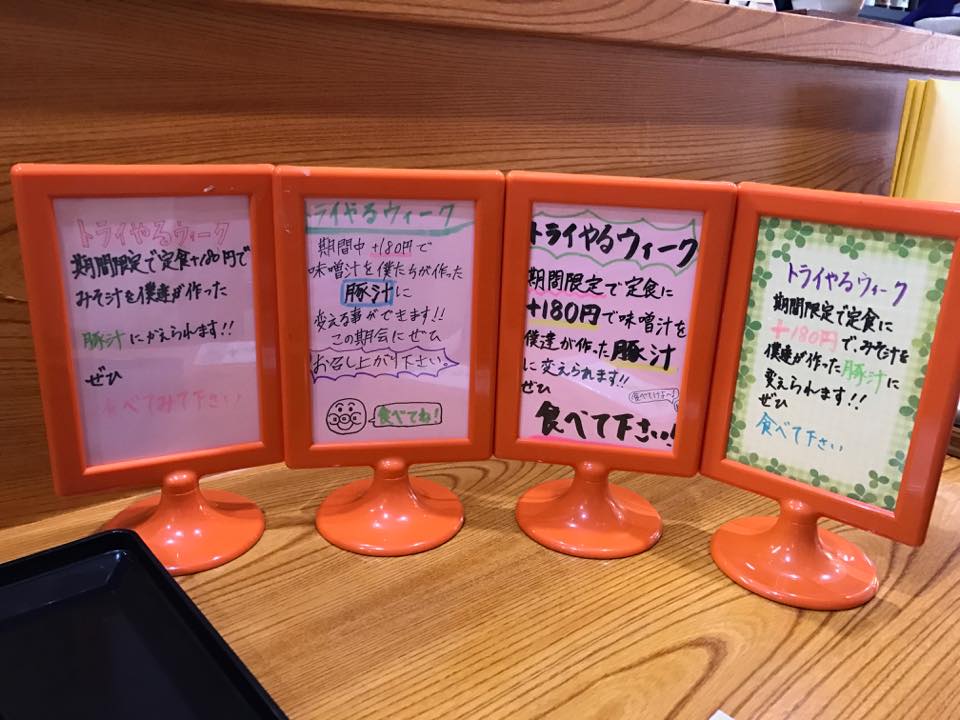 トライやるウィーク
期間限定で定食+180円で
みそ汁を僕達が作った
豚汁にかえられます!!
ぜひ
食べてみて下さい
トライやるウィーク
期間中+180円で
味噌汁を僕たちが作った
豚汁に
変える事ができます!!
この期会にぜひ
お召し上がり下さい
食べてね!
トライやるウィーク
期間限定で定食に
+180円で味噌汁を
僕達が作った豚汁
に変えられます!!
ぜひ
食べて下さい!
トライやるウィーク
期間限定で定食に
+180円で、みそ汁を
僕達が作った豚汁に
変えられます!!
ぜひ
食べて下さい